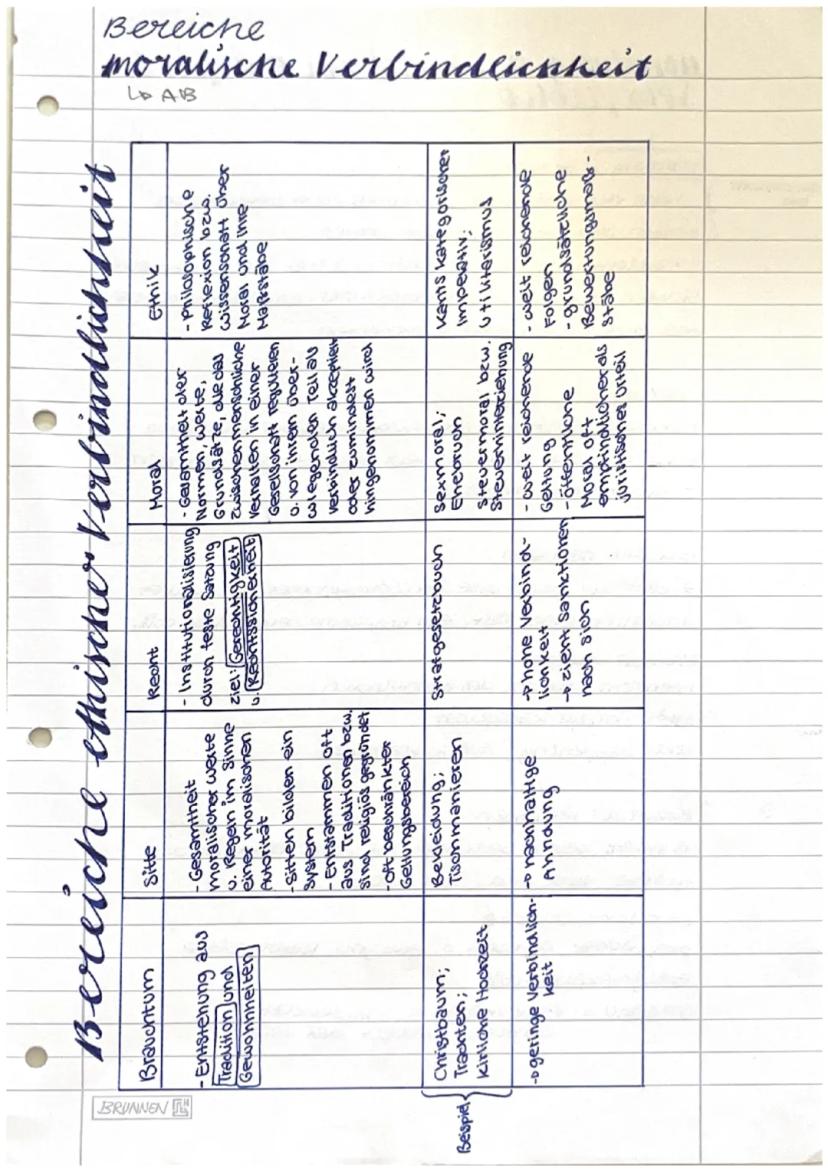 Bereiche
moralische Verbindlichkeit
↳ AB
Bereiche ethischer Verbindlichkeit
Brauchtum
- Entstehung aus
Tradition und
Gewohnheiten
Christbaum;
Trachten;
Kirliche Hochzeit
→ geringe Verbindlich-
keit
Sitte
- Gesamtheit
moralischer Werte
u. Regeln im Sinne
einer moralischen
Autorität
- Sitten bilden ein
System
- Entstammen oft
aus Traditionen bzw.
sind religiös gegründet
- oft beschränkter
Geltungsbereich
Bekleidung;
Tischmanieren
→ nachhaltige
Ahndung
Recht
- Institutionalisierung
durch feste Satzung
Ziel: Gerechtigkeit
u. Rechtssicherheit
Strafgesetzbuch
→ hohe Verbind-
lichkeit
→ zieht Sanktionen
nach sich
Moral
- Gesamtheit der
Normen, Werte,
Grundsätze, die das
zwischenmenschliche
Verhalten in einer
Gesellschaft regulieren
u. von ihrem über-
wiegenden Teil als
verbindlich akzeptiert
oder zumindest
hingenommen wird
Sexmoral;
Ehebruch
Steuermoral bzw.
Steuerhinterziehung
- weit reichende
Geltung
- öffentliche
Moral oft
empfindlicher als
juristisches Urteil
Ethik
- Philosophische
Reflexion bzw.
Wissenschaft über
Moral und ihre
Maßstäbe
Kants Kategorischer
Imperativ;
Utilitarismus
- weit reichende
Folgen
- grundsätzliche
Bewertungsmaß-
stäbe
Beispiel
BRUNNEN